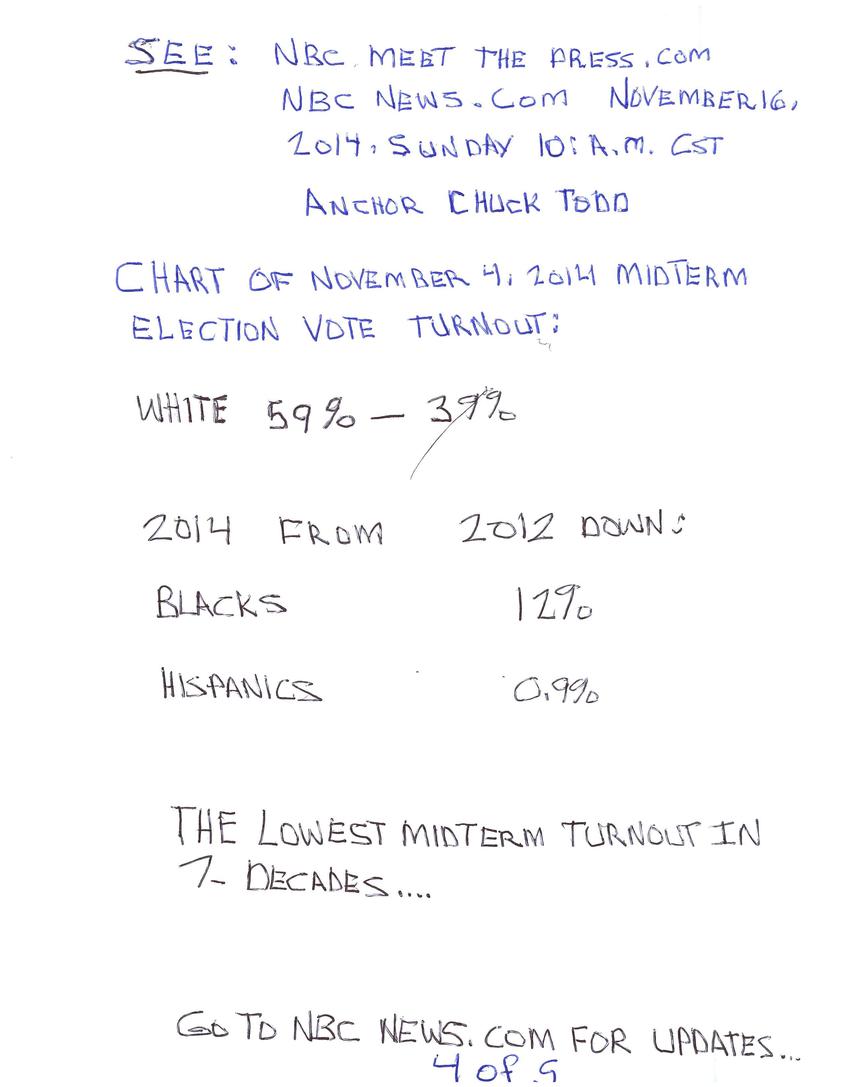 SEE: NBC MEET THE PRESS.COM
NBC NEWS.COM NOVEMBER 16,
2014, SUNDAY 10: A.M. CST
ANCHOR CHUCK TODD
CHART OF NOVEMBER 4, 2014 MIDTERM
ELECTION VOTE TURNOUT:
WHITE 59% — 39%
2014 FROM 2012 DOWN:
BLACKS 12%
HISPANICS 0.9%
THE LOWEST MIDTERM TURNOUT IN
7- DECADES....
GO TO NBC NEWS.COM FOR UPDATES...
4 of